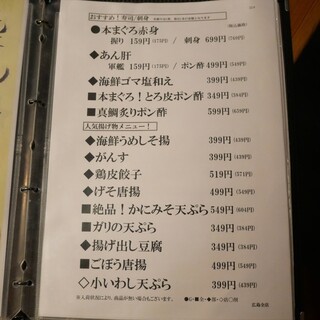 おすすめ！寿司/刺身
●本まぐろ赤身
握り 159円(173円) / 刺身 699円
◆あん肝
軍艦 159円(173円) / ポン酢 499円(549円)
◆海鮮ゴマ塩和え 399円(439円)
■本まぐろ！とろ皮ポン酢 349円(384円)
■真鯛炙りポン酢 499円(549円)
人気揚げ物メニュー！
◆海鮮うめしそ揚 399円(439円)
◆がんす 399円(439円)
◆鶏皮餃子 519円(571円)
◆げそ唐揚 499円(549円)
■絶品！かにみそ天ぷら 549円(604円)
■ガリの天ぷら 349円(384円)
◆揚げ出し豆腐 349円(384円)
■ごぼう唐揚 499円(549円)
◇小いわし天ぷら 399円(439円)
※入荷状況により、商品が無い場合もございます。